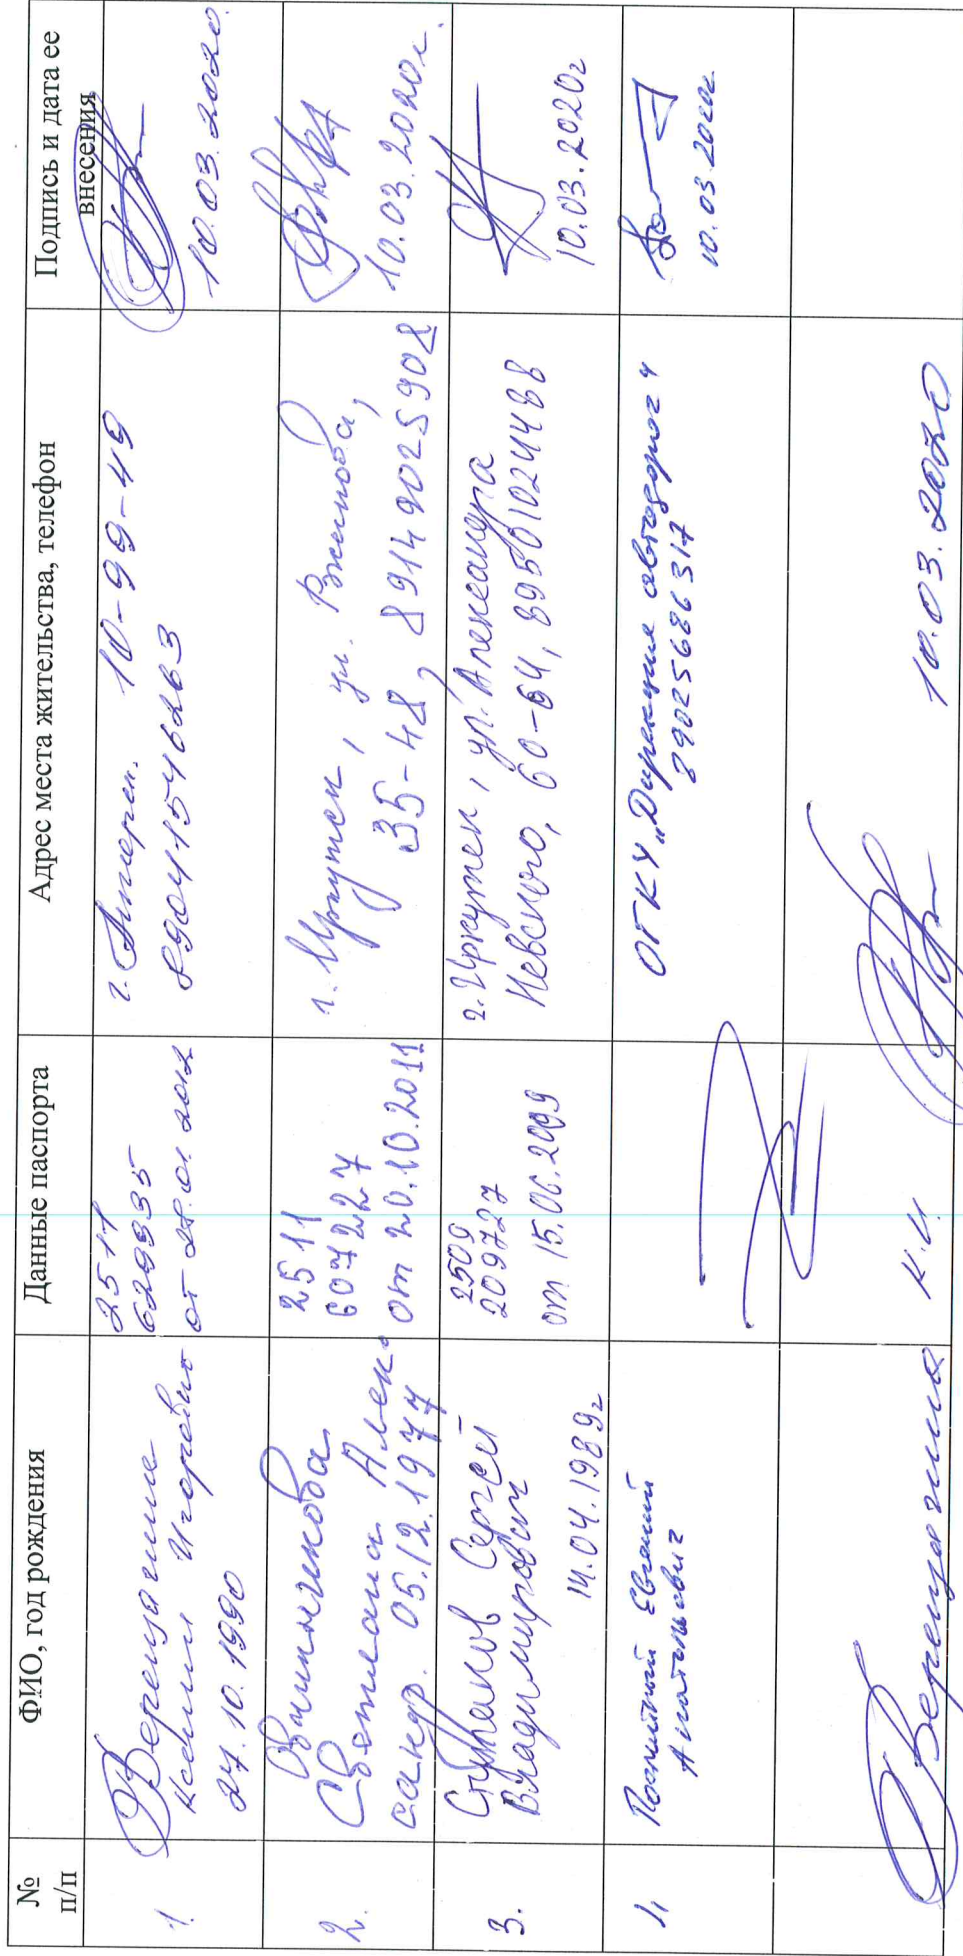 №
п/п
ФИО, год рождения
Данные паспорта
Адрес места жительства, телефон
Подпись и дата ее
внесения
1.
Верещагина
Ксения Игоревна
27.10.1990
2511
629935
от 28.01.2012
г. Ангарск. 10-99-49
89041546263
10.03.2020
2.
Овчинникова
Светлана Алек-
сандр. 05.12.1977
2511
607227
от 20.10.2011
г. Иркутск, ул.
35-48, 89149025908
10.03.2020г.
3.
Сергей
Владимирович
14.04.1989г
2509
209727
от 15.06.2009
г. Иркутск, ул. Александра
Невского, 60-64,
10.03.2020г
4
Евгений
Анатольевич
ОГКУ „Дирекция автодорог"
89025686317
10.03.2020г.
Верещагина К.И. 10.03.2020